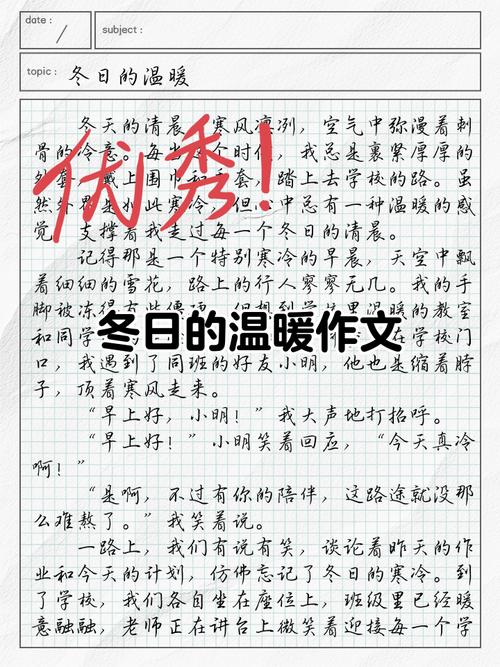 date :
/
subject :
topic : 冬日的温暖
冬天的清晨，寒风凛冽，空气中弥漫着刺
骨的冷意。每当这个时候，我总是裹紧厚厚的
外套，戴上围巾和手套，踏上去学校的路。虽
然外界是如此寒冷，但心中总有一种温暖的感
觉，支撑着我走过每一个冬日的清晨。
优秀！
记得那是一个特别寒冷的早晨，天空中飘
着细细的雪花，路上的行人寥寥无几。我的手
脚被冻得有些僵硬，但想到学校里温暖的教室
和同学
在学校门
冬日的温暖作文
口，我遇到了同班的好友小明，他也是缩着脖
子，顶着寒风走来。
“早上好，小明！”我大声地打招呼。
“早上好！”小明笑着回应，“今天真冷
啊！”
“是啊，不过有你的陪伴，这路途就没那
么难熬了。”我笑着说。
一路上，我们有说有笑，谈论着昨天的作
业和今天的计划，仿佛忘记了冬日的寒冷。到
了学校，我们各自坐在座位上，班级里已经暖
意融融，老师正在讲台上微笑着迎接每一个学